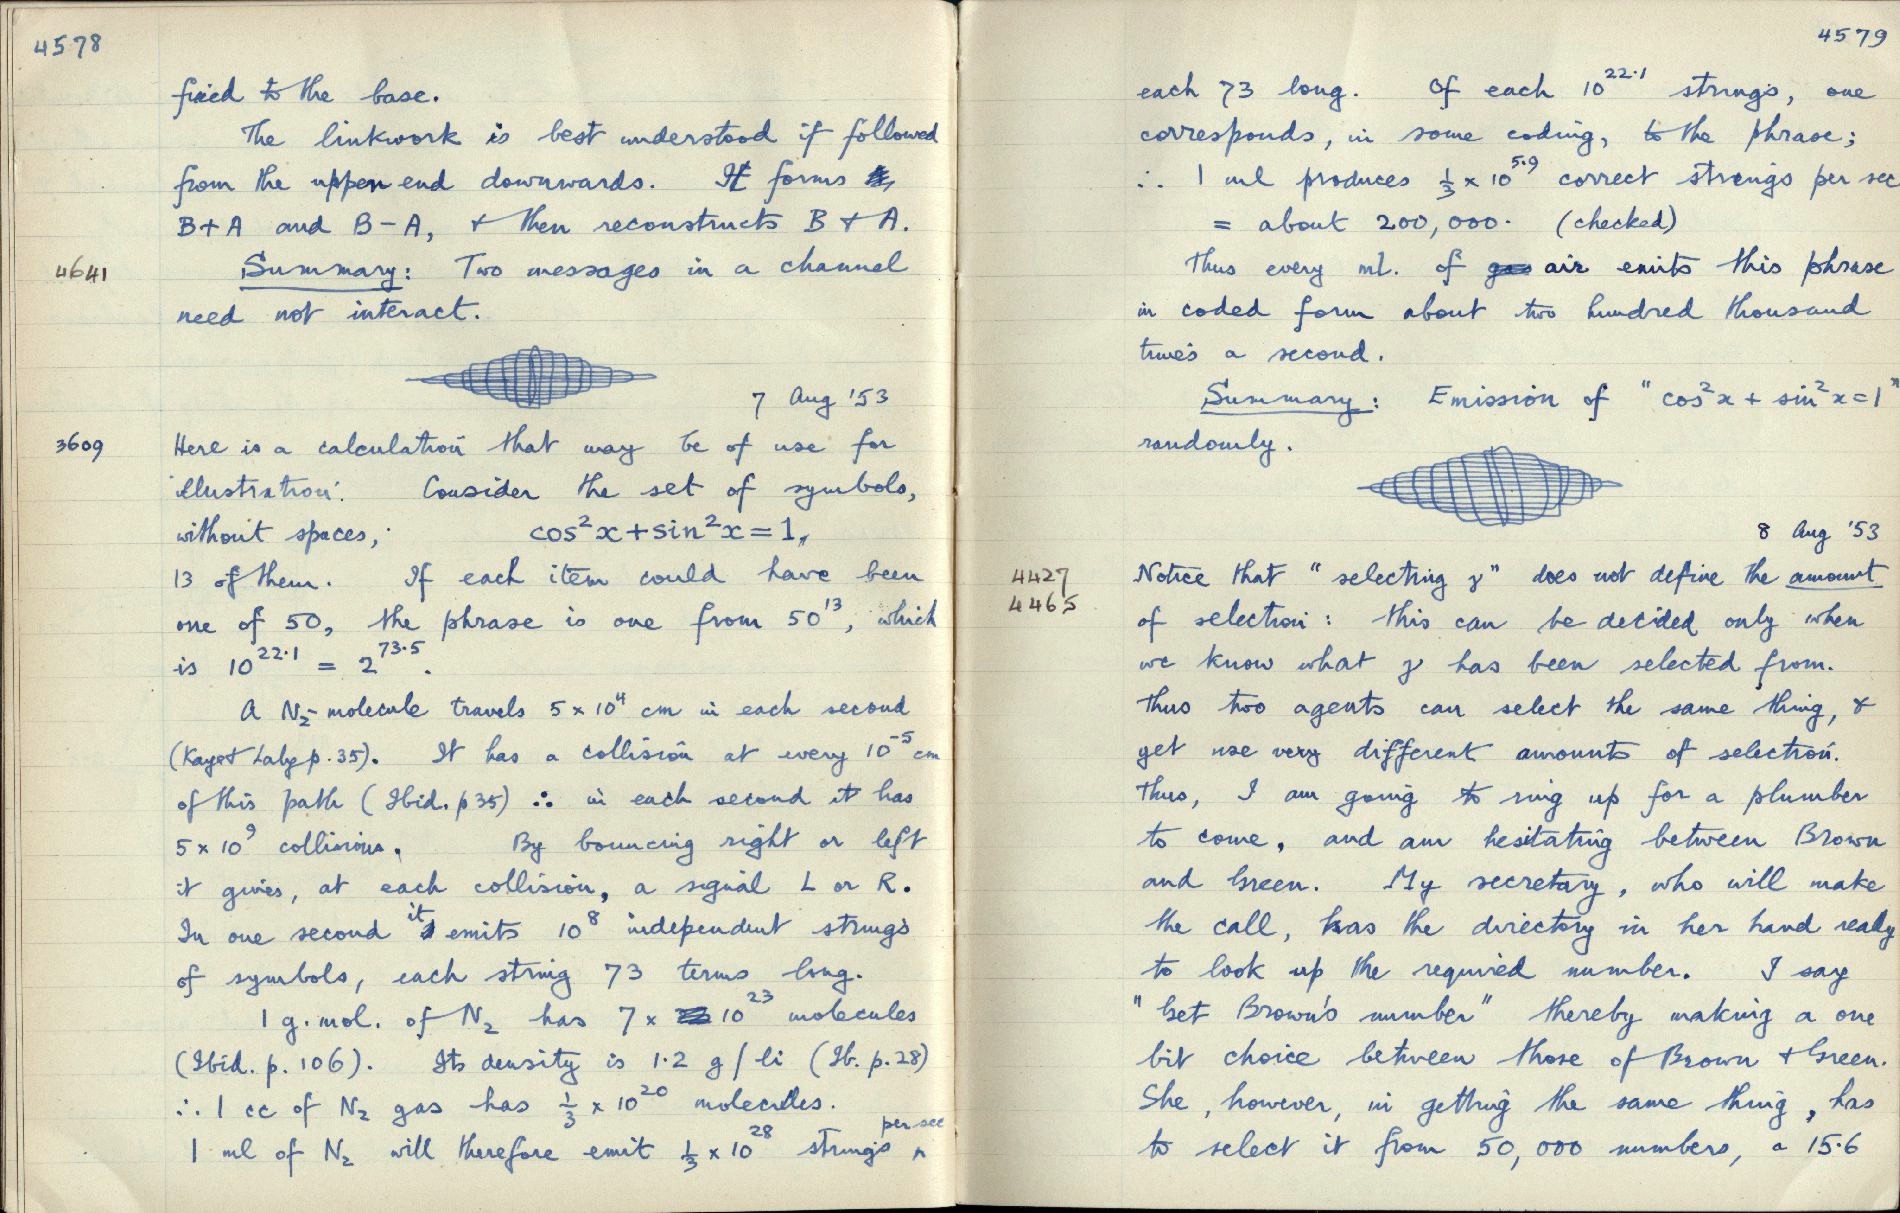 4578
fixed to the base.
The linkwork is best understood if followed
from the upper end downwards. It forms
B+A and B-A, & then reconstructs B & A.
4641 Summary: Two messages in a channel
need not interact.
7 Aug '53
3609 Here is a calculation that may be of use for
'illustration'. Consider the set of symbols,
without spaces, cos²x+sin²x=1,
13 of them. If each item could have been
one of 50, the phrase is one from 50¹³, which
is 10²²·¹ = 2⁷³·⁵.
A N₂-molecule travels 5 × 10⁴ cm in each second
(Kaye & Laby p. 35). It has a collision at every 10⁻⁵ cm
of this path (Ibid. p 35) ∴ in each second it has
5 × 10⁹ collisions. By bouncing right or left
it gives, at each collision, a signal L or R.
In one second it emits 10⁸ independent strings
of symbols, each string 73 terms long.
1 g. mol. of N₂ has 7 × 10²³ molecules
(Ibid. p. 106). Its density is 1·2 g/li (Ib. p. 28)
∴ 1 cc of N₂ gas has ⅓ × 10²⁰ molecules.
1 ml of N₂ will therefore emit ⅓ × 10²⁸ strings per sec
4579
each 73 long. Of each 10²²·¹ strings, one
corresponds, in some coding, to the phrase;
∴ 1 ml produces ⅓ × 10⁵·⁹ correct strings per sec
= about 200,000. (checked)
Thus every ml. of air emits this phrase
in coded form about two hundred thousand
times a second.
Summary: Emission of "cos²x + sin²x=1"
randomly.
8 Aug '53
4427 Notice that "selecting y" does not define the amount
4465 of selection: this can be decided only when
we know what y has been selected from.
Thus two agents can select the same thing, &
yet use very different amounts of selection.
Thus, I am going to ring up for a plumber
to come, and am hesitating between Brown
and Green. My secretary, who will make
the call, has the directory in her hand ready
to look up the required number. I say
"Get Brown's number" thereby making a one
bit choice between those of Brown & Green.
She, however, in getting the same thing, has
to select it from 50,000 numbers, a 15·6